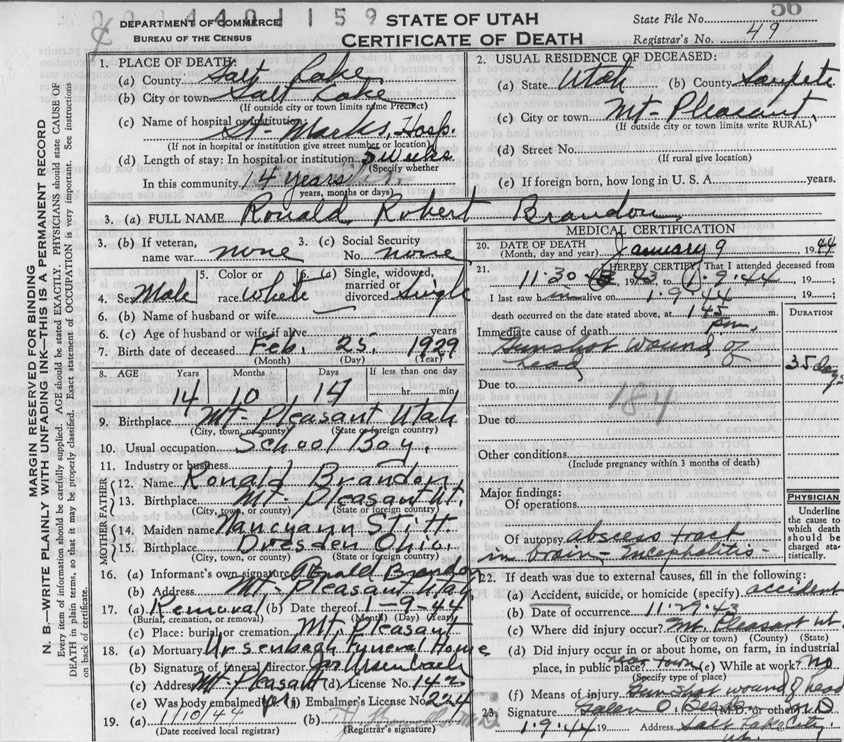 2044401159
56
DEPARTMENT OF COMMERCE
BUREAU OF THE CENSUS
STATE OF UTAH
CERTIFICATE OF DEATH
State File No.
Registrar's No. 49
MARGIN RESERVED FOR BINDING
N. B.—WRITE PLAINLY WITH UNFADING INK—THIS IS A PERMANENT RECORD
Every item of information should be carefully supplied. AGE should be stated EXACTLY. PHYSICIANS should state CAUSE OF
DEATH in plain terms, so that it may be properly classified. Exact statement of OCCUPATION is very important. See instructions
on back of certificate.
1. PLACE OF DEATH:
(a) County Salt Lake
(b) City or town Salt Lake
(If outside city or town limits name Precinct)
(c) Name of hospital or institution:
St- Marks, Hosp.
(If not in hospital or institution give street number or location)
(d) Length of stay: In hospital or institution 5 weeks
(Specify whether
In this community 14 years
years, months or days)
2. USUAL RESIDENCE OF DECEASED:
(a) State Utah (b) County Sanpete
(c) City or town Mt- Pleasant,
(If outside city or town limits write RURAL)
(d) Street No.
(If rural give location)
(e) If foreign born, how long in U. S. A. years.
3. (a) FULL NAME Ronald Robert Brandon
3. (b) If veteran, name war none
3. (c) Social Security No. none
4. Sex Male
5. Color or race White
6. (a) Single, widowed, married or divorced Single
6. (b) Name of husband or wife
6. (c) Age of husband or wife if alive years
7. Birth date of deceased Feb. 25 1929
(Month) (Day) (Year)
8. AGE Years Months Days If less than one day
14 10 14 hr. min.
9. Birthplace Mt- Pleasant Utah
(City, town, or county) (State or foreign country)
10. Usual occupation School Boy.
11. Industry or business
FATHER
12. Name Ronald Brandon
13. Birthplace Mt- Pleasant Ut.
(City, town, or county) (State or foreign country)
MOTHER
14. Maiden name Nancyann Stitt
15. Birthplace Dresden Ohio.
(City, town, or county) (State or foreign country)
16. (a) Informant's own signature Ronald Brandon
(b) Address Mt- Pleasant Utah
17. (a) Removal (b) Date thereof 1-9-44
(Burial, cremation, or removal) (Month) (Day) (Year)
(c) Place: burial or cremation Mt. Pleasant
18. (a) Mortuary Ursenbach Funeral Home
(b) Signature of funeral director Ursenbach
(c) Address Mt- Pleasant (d) License No. 142
(e) Was body embalmed yes (f) Embalmer's License No. 224
19. (a) 1/10/44 (b)
(Date received local registrar) (Registrar's signature)
MEDICAL CERTIFICATION
20. DATE OF DEATH
(Month, day and year) January 9 1944
21. I HEREBY CERTIFY That I attended deceased from
11-30-43 to 1-9-44, 19
I last saw him alive on 1-9-44 19
death occurred on the date stated above, at 145 pm. m.
DURATION
Immediate cause of death
Gunshot wound of
head 35 days
Due to
184
Due to
Other conditions
(Include pregnancy within 3 months of death)
Major findings:
Of operations
Of autopsy abscess tract
in brain - Encephalitis -
PHYSICIAN
Underline
the cause to
which death
should be
charged sta-
tistically.
22. If death was due to external causes, fill in the following:
(a) Accident, suicide, or homicide (specify) accident
(b) Date of occurrence 11-29-43
(c) Where did injury occur? Mt. Pleasant Ut.
(City or town) (County) (State)
(d) Did injury occur in or about home, on farm, in industrial
place, in public place? near town (e) While at work? No
(Specify type of place)
(f) Means of injury Gunshot wound of head
23. Signature Galen O. (M.D. or other) MD
1-9-44 19 Address Salt Lake City,
Ut.